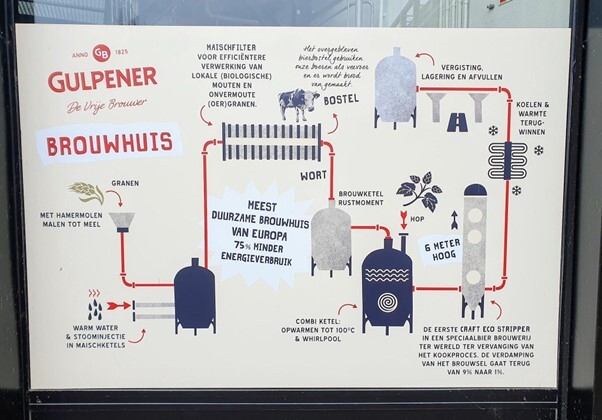 ANNO GB 1825
GULPENER
De Vrije Brouwer
BROUWHUIS
MAISCHFILTER
VOOR EFFICIËNTERE
VERWERKING VAN
LOKALE (BIOLOGISCHE)
MOUTEN EN
ONVERMOUTE
(OER)GRANEN.
Het overgebleven
bierbostel gebruiken
onze boeren als veevoer
en er wordt brood
van gemaakt.
BOSTEL
VERGISTING,
LAGERING EN AFVULLEN
KOELEN &
WARMTE
TERUG-
WINNEN
GRANEN
MET HAMERMOLEN
MALEN TOT MEEL
WORT
MEEST
DUURZAME BROUWHUIS
VAN EUROPA
75% MINDER
ENERGIEVERBRUIK
BROUWKETEL
RUSTMOMENT
HOP
6 METER
HOOG
WARM WATER
& STOOMINJECTIE
IN MAISCHKETELS
COMBI KETEL:
OPWARMEN TOT 100°C
& WHIRLPOOL
DE EERSTE CRAFT ECO STRIPPER
IN EEN SPECIAALBIER BROUWERIJ
TER WERELD TER VERVANGING VAN
HET KOOKPROCES. DE VERDAMPING
VAN HET BROUWSEL GAAT TERUG
VAN 9% NAAR 1%.